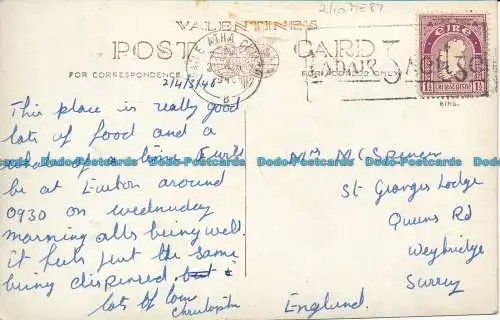 2/10 ME87
VALENTINE'S
POST CARD
FOR CORRESPONDENCE
FOR ADDRESS ONLY
BAILE ÁTHA CLIATH
LABAIR
ÉIRE
1½
24/3/46
This place is really good
lots of food and a
of a time I will
be at Euston around
0930 on wednesday
morning all's being well.
it feels just the same
being dispensed
lots of love
Christopher
Mrs McSpencer
St Georges Lodge
Queens Rd
Weybridge
Surrey
England.
Dodo-Postcards Dodo-Postcards Dodo-Postcards